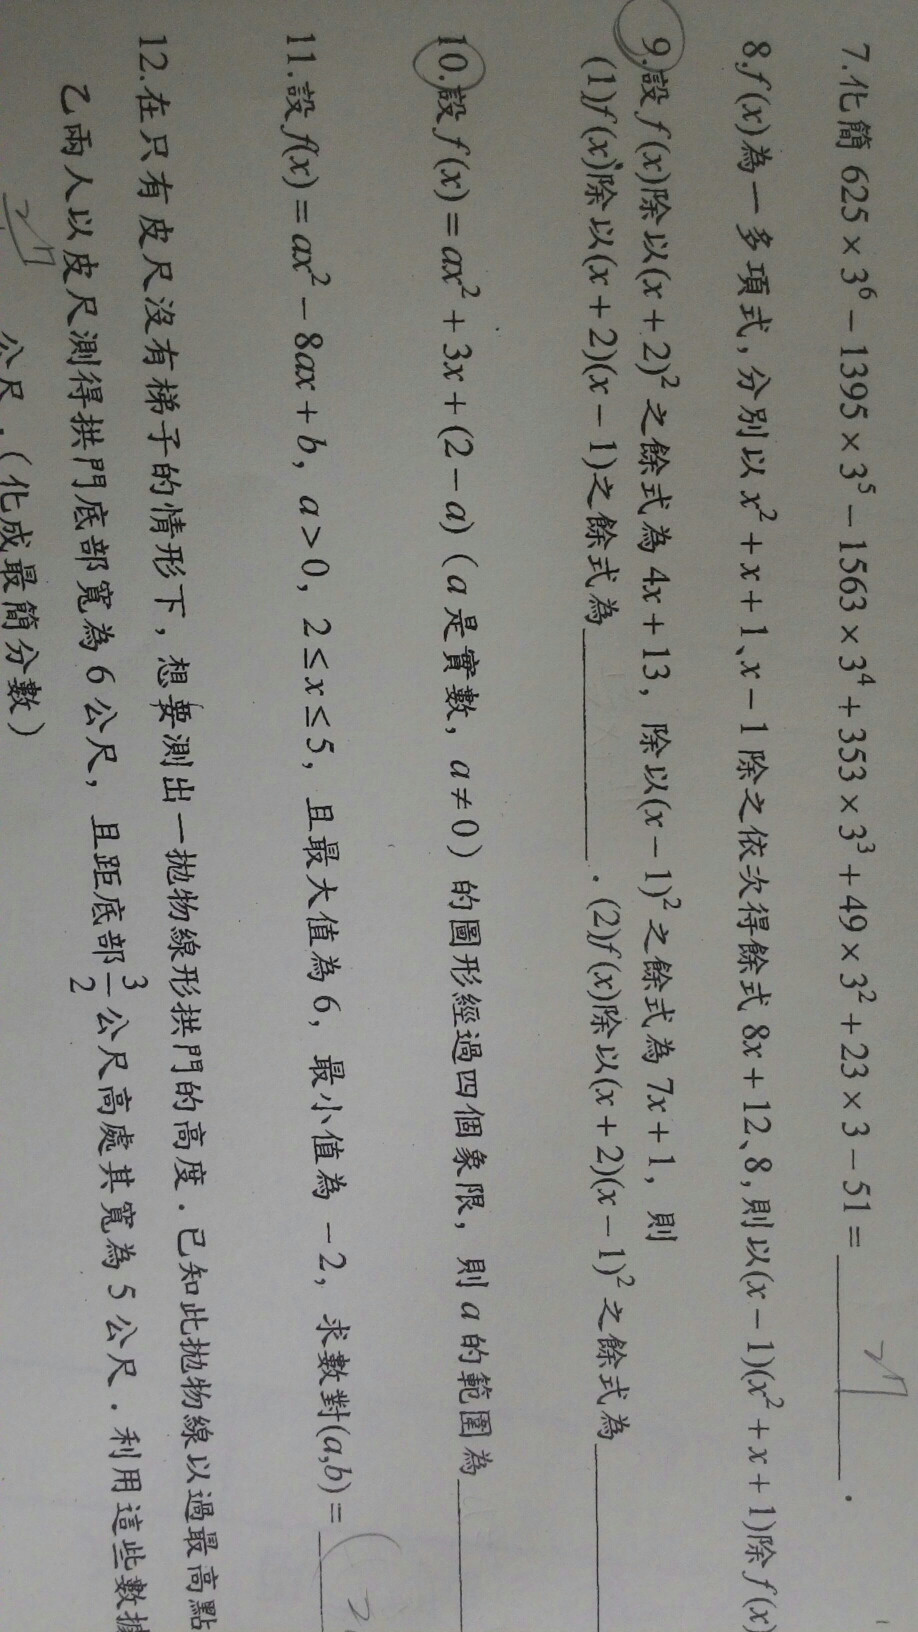 7.化簡 625 × 3⁶ − 1395 × 3⁵ − 1563 × 3⁴ + 353 × 3³ + 49 × 3² + 23 × 3 − 51 = ________ .
8.f(x)為一多項式,分別以 x² + x + 1、x − 1 除之依次得餘式 8x + 12、8,則以(x − 1)(x² + x + 1)除 f(x)
9.設 f(x)除以(x + 2)² 之餘式為 4x + 13,除以(x − 1)² 之餘式為 7x + 1,則
(1)f(x)除以(x + 2)(x − 1)之餘式為________.(2)f(x)除以(x + 2)(x − 1)² 之餘式為________
10.設 f(x) = ax² + 3x + (2 − a)(a 是實數,a ≠ 0)的圖形經過四個象限,則 a 的範圍為________
11.設 f(x) = ax² − 8ax + b,a > 0,2 ≤ x ≤ 5,且最大值為 6,最小值為 −2,求數對(a,b) = ________
12.在只有皮尺沒有梯子的情形下,想要測出一拋物線形拱門的高度.已知此拋物線以過最高點
乙兩人以皮尺測得拱門底部寬為 6 公尺,且距底部 3/2 公尺高處其寬為 5 公尺.利用這些數據
公尺.(化成最簡分數)